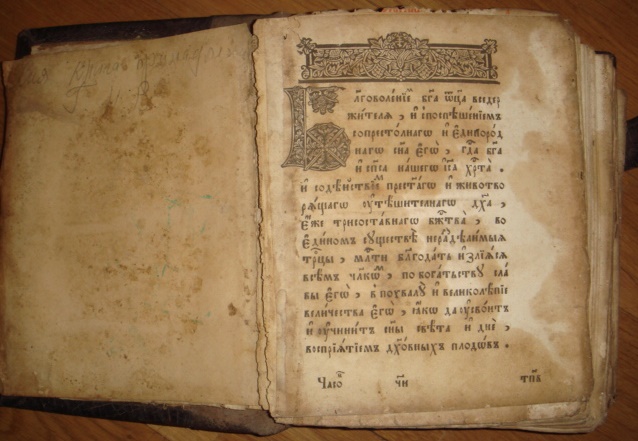 Бл҃говоленїемъ бг҃а ѻц҃а вседер
жителѧ , и҆ споспѣшенїемъ
сопрестолнагѡ и҆ є҆диноро́д
нагѡ сн҃а є҆гѡ̀ , гд҇а бг҃а
и҆ сп҃са нашегѡ і҆с҃а хрⷭ҇та̀ .
и҆ содѣйствїемъ прест҃агѡ и҆ животво
рѧщагѡ ᲂу҆тѣшителнагѡ дх҃а ,
є҆́же трисоставнагѡ бж҇тва̀ , во
є҆ди́номъ сᲂуществѣ̀ нераздѣлимыѧ
трⷪ҇цы , млⷭ҇ти бл҃года́ть и҆злїѧ́сѧ
всѣмъ чл҃кѡмъ , по богатьствᲂу сла
вы є҆гѡ̀ , в похвалᲂу̀ и҆ великолѣ́пїе
величества є҆гѡ̀ , ꙗ҆́кѡ да ᲂу҆сво́итъ
и҆ ᲂу҆чини́тъ сн҃ы свѣта и҆ днѐ ,
воспрїѧ́тїемъ дх҃о́вныхъ плодо́въ .
Часо́